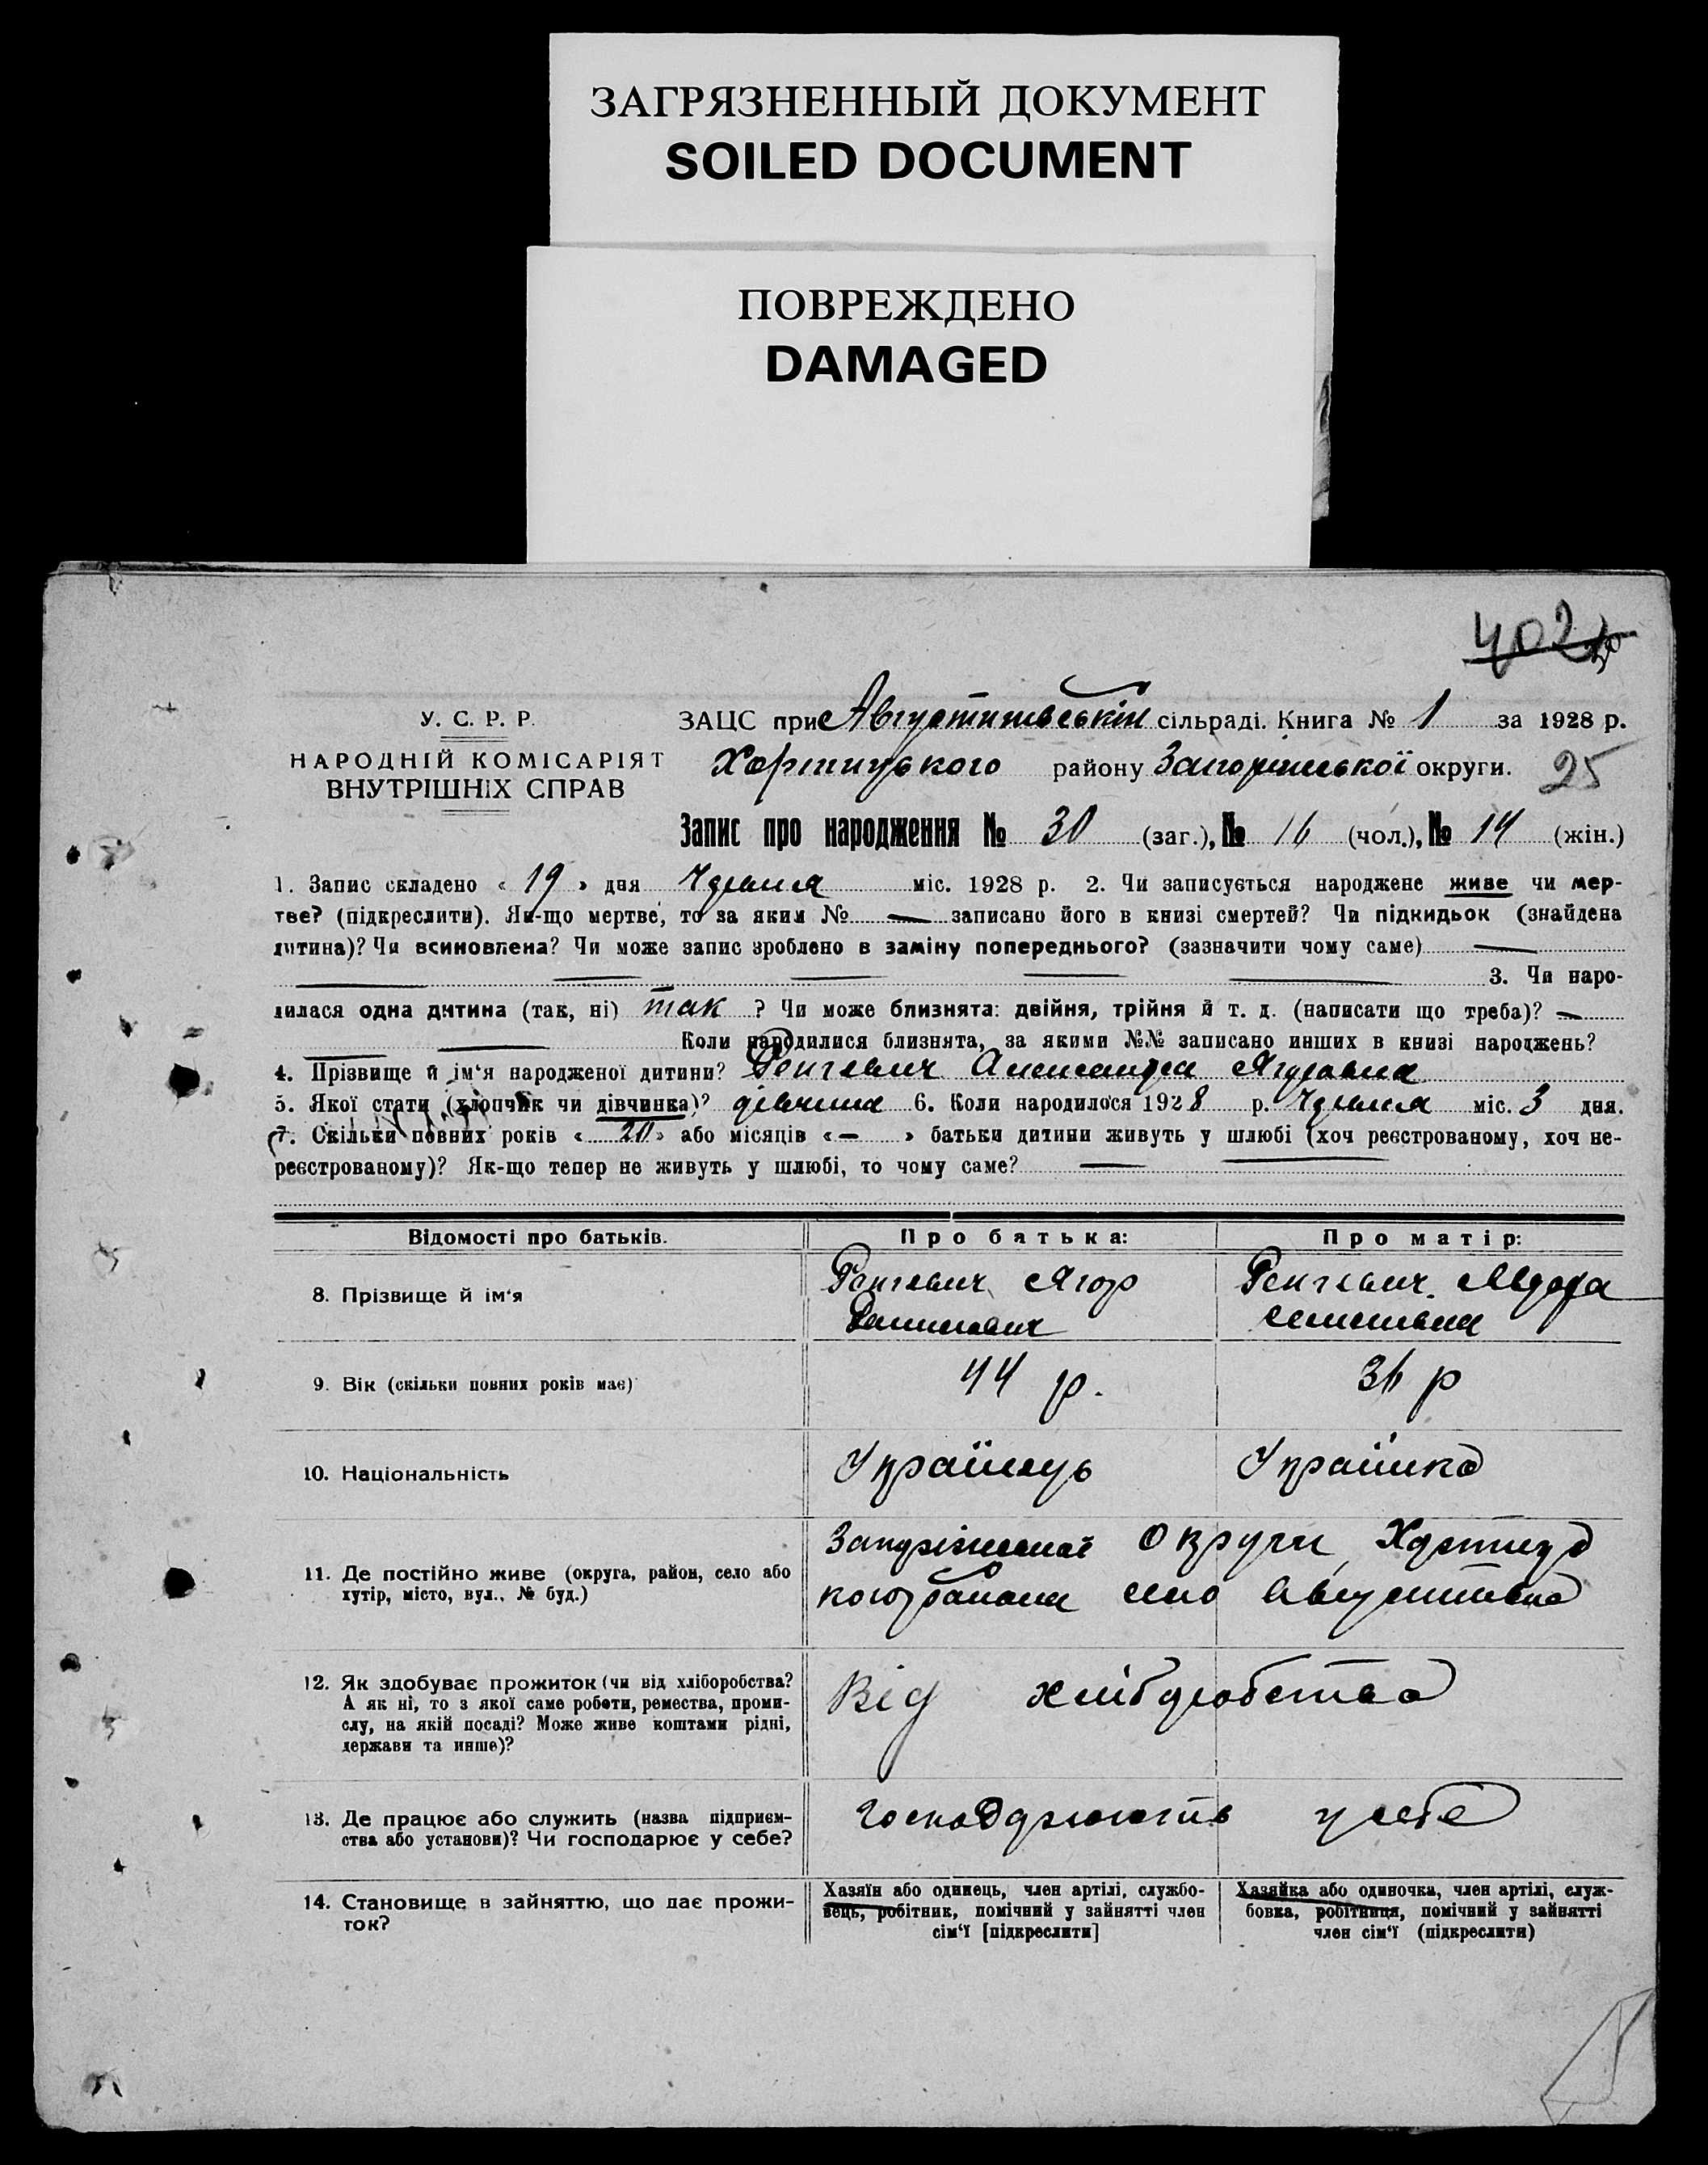 ЗАГРЯЗНЕННЫЙ ДОКУМЕНТ
SOILED DOCUMENT
ПОВРЕЖДЕНО
DAMAGED
402
У. С. Р. Р.
НАРОДНІЙ КОМІСАРІЯТ
ВНУТРІШНІХ СПРАВ
ЗАЦС при Августинівській сільраді. Книга № 1 за 1928 р.
Хортицького району Запоріжської округи. 25
Запис про народження № 30 (заг.), № 16 (чол.), № 14 (жін.)
1. Запис складено « 19 » дня міс. 1928 р. 2. Чи записується народжене живе чи мер-
тве? (підкреслити). Як-що мертве, то за яким № — записано його в книзі смертей? Чи підкидьок (знайдена
дитина)? Чи всиновлена? Чи може запис зроблено в заміну попереднього? (зазначити чому саме) —
— — — — — 3. Чи наро-
дилася одна дитина (так, ні) так ? Чи може близнята: двійня, трійня й т. д. (написати що треба)? —
— — Коли народилися близнята, за якими №№ записано инших в книзі народжень?
4. Прізвище й ім‘я народженої дитини? Ренгевич Александра Ягоровна
5. Якої стати (хлопчик чи дівчинка)? дівчина 6. Коли народилося 1928 р. міс. 3 дня.
7. Скільки повних років « 20 » або місяців « — » батьки дитини живуть у шлюбі (хоч реєстрованому, хоч не-
реєстрованому)? Як-що тепер не живуть у шлюбі, то чому саме? — —
Відомості про батьків. Про батька: Про матір:
8. Прізвище й ім‘я Ренгевич Ягор Ренгевич
9. Вік (скільки повних років має) 44 р. 36 р
10. Національність Українець Українка
11. Де постійно живе (округа, район, село або
хутір, місто, вул., № буд.)
Запоріжської Округи Хортиць
кого району село Августинівка
12. Як здобуває прожиток (чи від хліборобства?
А як ні, то з якої саме роботи, ремества, проми-
слу, на якій посаді? Може живе коштами рідні,
держави та инше)?
Від хліборобства
13. Де працює або служить (назва підприєм-
ства або установи)? Чи господарює у себе?
Господарюють у себе
14. Становище в зайняттю, що дає прожи-
ток?
Хазяїн або одинець, член артілі, службо-
вець, робітник, помічний у зайнятті член
сім‘ї [підкреслити]
Хазяйка або одиночка, член артілі, служ-
бовка, робітниця, помічний у зайнятті
член сім‘ї (підкреслити)